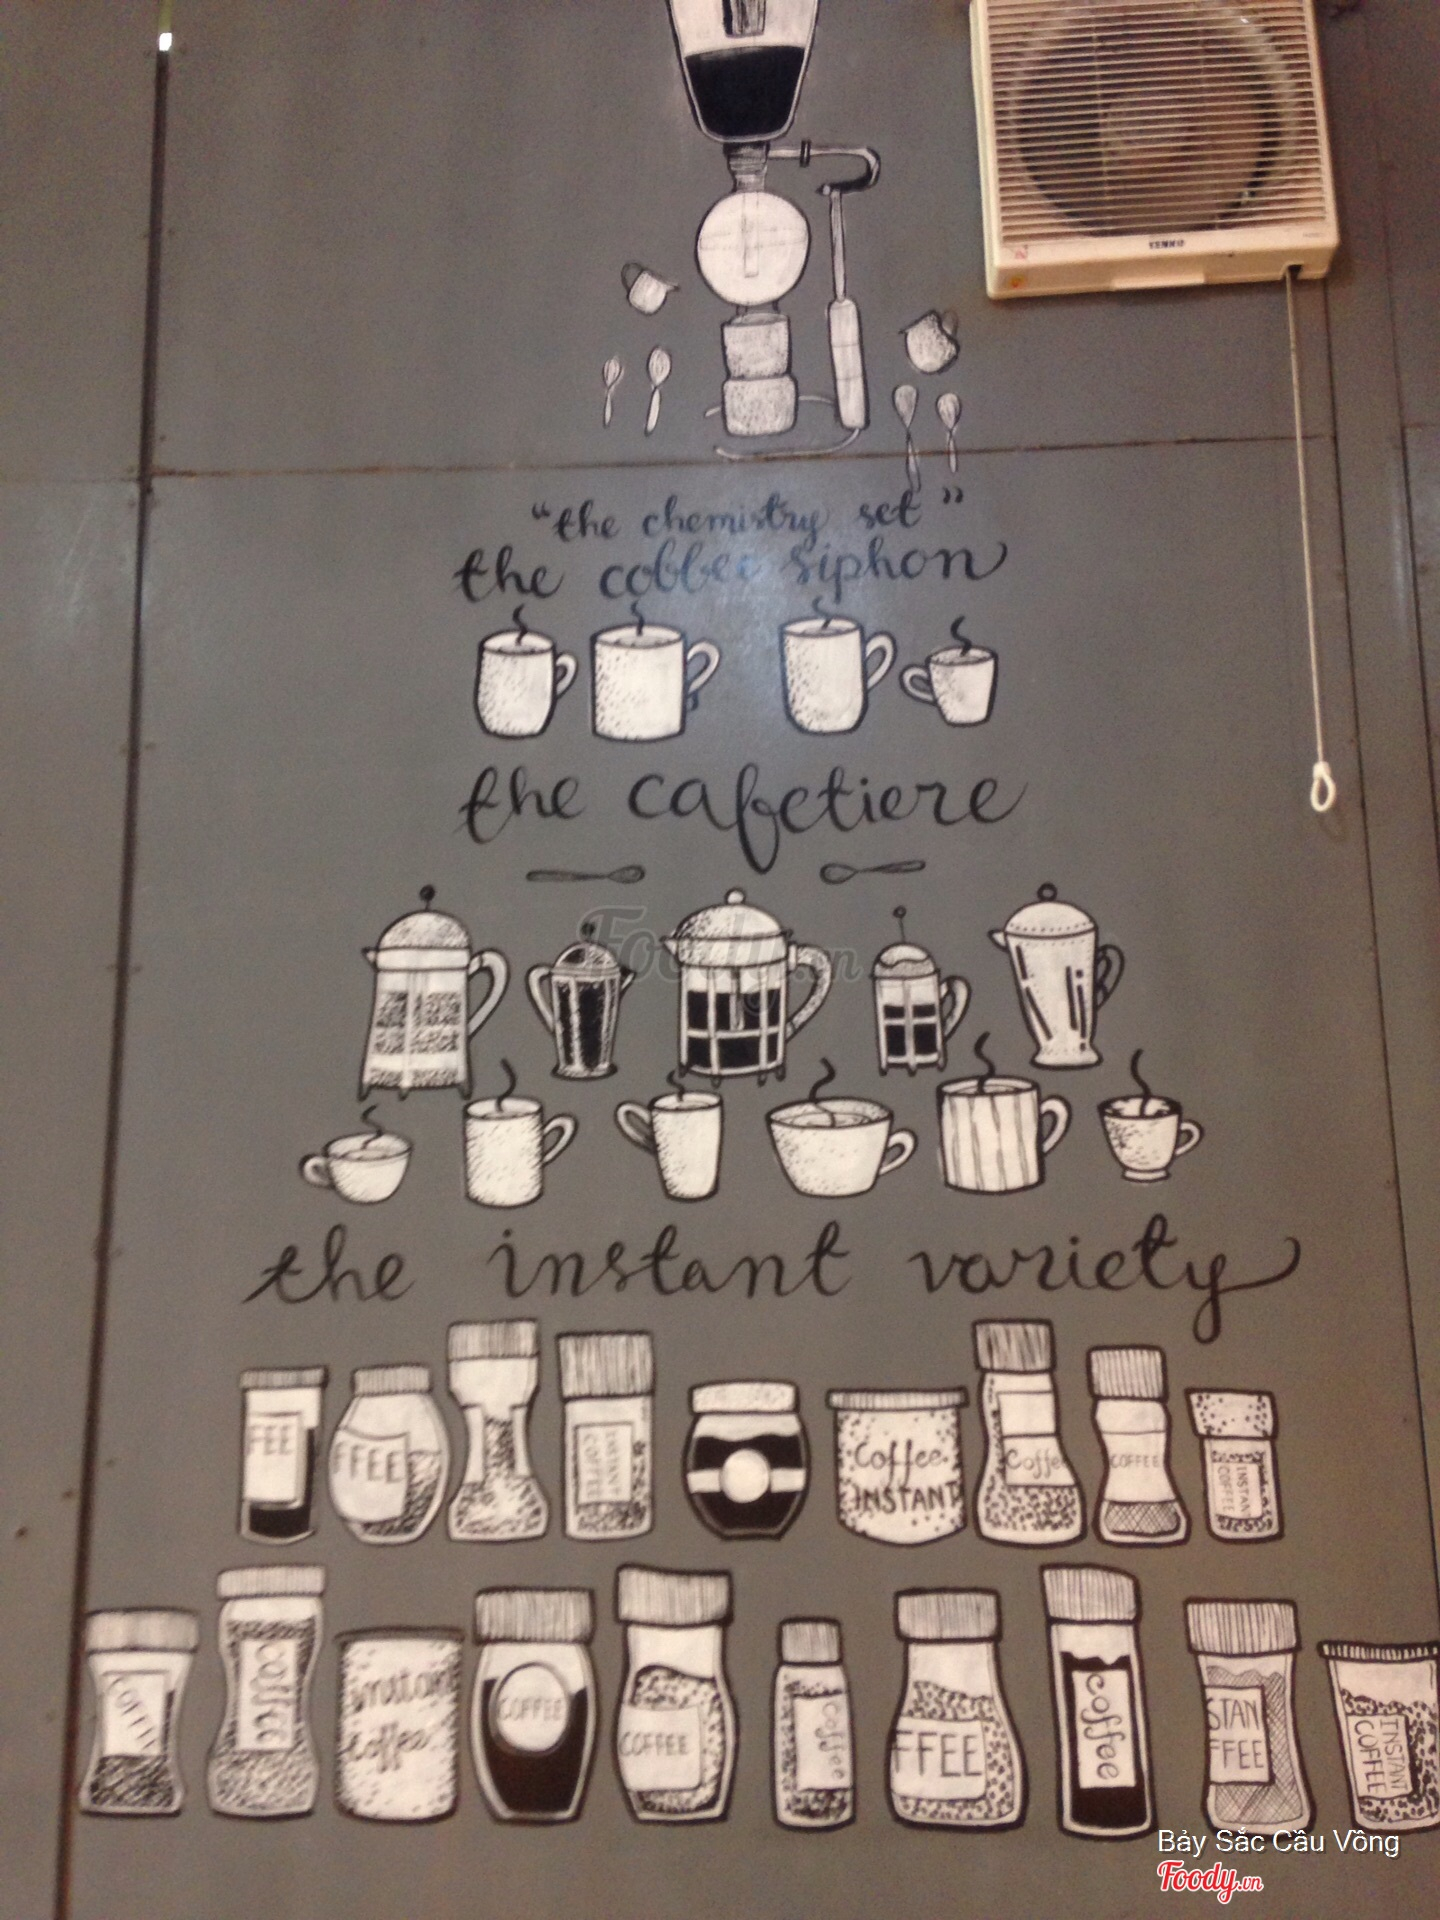 KENKO
"the chemistry set"
the coffee siphon
the cafetiere
Foody.vn
the instant variety
FEE
FFEE
INSTANT
COFFEE
Coffee
INSTANT
Coffee
COFFEE
INSTANT
COFFEE
COFFEE
COFFEE
instant
Coffee
COFFEE
COFFEE
Coffee
FFEE
Coffee
STAN
FFEE
INSTANT
COFFEE
Bảy Sắc Cầu Vồng
Foody.vn